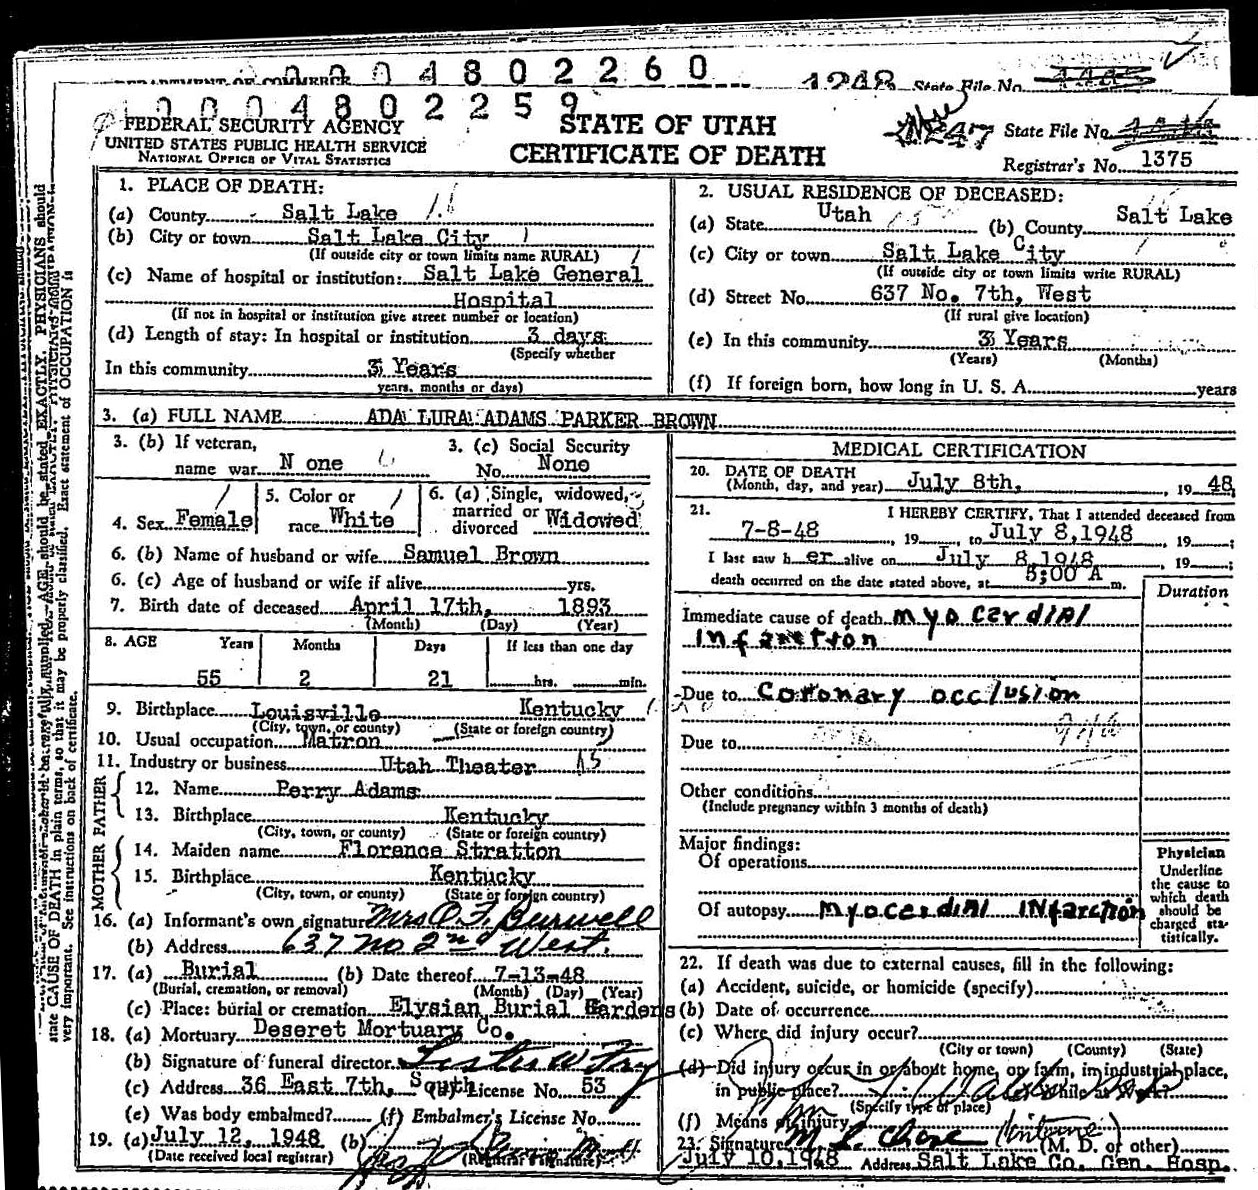 DEPARTMENT OF COMMERCE 0004802260 1248 State File No.
0004802259
FEDERAL SECURITY AGENCY
UNITED STATES PUBLIC HEALTH SERVICE
NATIONAL OFFICE OF VITAL STATISTICS
STATE OF UTAH
CERTIFICATE OF DEATH
1247 State File No.
Registrar's No. 1375
1. PLACE OF DEATH:
(a) County Salt Lake
(b) City or town Salt Lake City
(If outside city or town limits name RURAL)
(c) Name of hospital or institution: Salt Lake General
Hospital
(If not in hospital or institution give street number or location)
(d) Length of stay: In hospital or institution 3 days
(Specify whether
In this community 3 Years
years, months or days)
2. USUAL RESIDENCE OF DECEASED:
(a) State Utah (b) County Salt Lake
(c) City or town Salt Lake City
(If outside city or town limits write RURAL)
(d) Street No. 637 No. 7th, West
(If rural give location)
(e) In this community 3 Years
(Years) (Months)
(f) If foreign born, how long in U. S. A. years
3. (a) FULL NAME ADA LURA ADAMS PARKER BROWN
3. (b) If veteran,
name war N one
3. (c) Social Security
No. None
4. Sex Female
5. Color or
race White
6. (a) Single, widowed,
married or
divorced Widowed
6. (b) Name of husband or wife Samuel Brown
6. (c) Age of husband or wife if alive yrs.
7. Birth date of deceased April 17th, 1893
(Month) (Day) (Year)
8. AGE Years Months Days If less than one day
55 2 21 hrs. min.
9. Birthplace Louisville Kentucky
(City, town, or county) (State or foreign country)
10. Usual occupation Matron
11. Industry or business Utah Theater 15
FATHER
12. Name Perry Adams
13. Birthplace Kentucky
(City, town, or county) (State or foreign country)
MOTHER
14. Maiden name Florence Stratton
15. Birthplace Kentucky
(City, town, or county) (State or foreign country)
16. (a) Informant's own signature Mrs O. F. Burwell
(b) Address 637 No 2nd West.
17. (a) Burial (b) Date thereof 7-13-48
(Burial, cremation, or removal) (Month) (Day) (Year)
(c) Place: burial or cremation Elysian Burial Gardens
18. (a) Mortuary Deseret Mortuary Co.
(b) Signature of funeral director
(c) Address 36 East 7th, South License No. 53
(e) Was body embalmed? (f) Embalmer's License No.
19. (a) July 12, 1948 (b)
(Date received local registrar) (Registrar's signature)
MEDICAL CERTIFICATION
20. DATE OF DEATH
(Month, day, and year) July 8th, , 19 48
21. I HEREBY CERTIFY, That I attended deceased from
7-8-48 , 19 , to July 8,1948 , 19 ;
I last saw h er alive on July 8,1948 , 19 ;
death occurred on the date stated above, at 5;00 A m.
Duration
Immediate cause of death myocardial
infarction
Due to coronary occlusion
Due to
Other conditions
(Include pregnancy within 3 months of death)
Major findings:
Of operations
Of autopsy myocardial infarction
Physician
Underline
the cause to
which death
should be
charged sta-
tistically.
22. If death was due to external causes, fill in the following:
(a) Accident, suicide, or homicide (specify)
(b) Date of occurrence
(c) Where did injury occur?
(City or town) (County) (State)
(d) Did injury occur in or about home, on farm, in industrial place,
in public place? While at work?
(Specify type of place)
(f) Means of injury
23. Signature (M. D. or other)
July 10,1948 Address Salt Lake Co. Gen. Hosp.
AGE should be stated EXACTLY. PHYSICIANS should
state CAUSE OF DEATH in plain terms, so that it may be properly classified. Exact statement of OCCUPATION is
very important. See instructions on back of certificate.